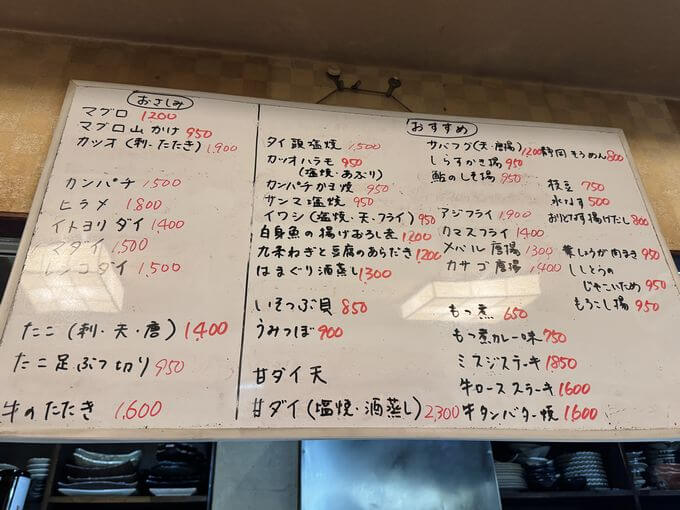 おさしみ
マグロ 1200
マグロ山かけ 950
カツオ(刺・たたき) 1,900
カンパチ 1,500
ヒラメ 1,800
イトヨリダイ 1400
マダイ 1,500
レンコダイ 1,500
たこ(刺・天・唐) 1,400
たこ足ぶつ切り 950
牛のたたき 1,600
おすすめ
タイ頭塩焼 1,500
カツオハラモ 950
(塩焼・あぶり)
カンパチかま焼 950
サンマ塩焼 950
イワシ(塩焼・天・フライ) 950
白身魚の揚げおろし煮 1200
九条ねぎと豆腐のあらだき 1200
はまぐり酒蒸し 1300
いそつぶ貝 850
うみつぼ 900
甘ダイ天
甘ダイ(塩焼・酒蒸し) 2,300
サバフグ(天・唐揚) 1200
しらすかき揚 950
鮎のしそ揚 950
アジフライ 1,900
カマスフライ 1400
メバル唐揚 1300
カサゴ唐揚 1,400
もつ煮 650
もつ煮カレー味 750
ミスジステーキ 1,850
牛ロースステーキ 1600
牛タンバター焼 1,600
静岡そうめん 800
枝豆 750
水なす 500
揚げだし 800
葉しょうが肉まき 950
ししとうの
じゃこいため 950
もろこし揚 950